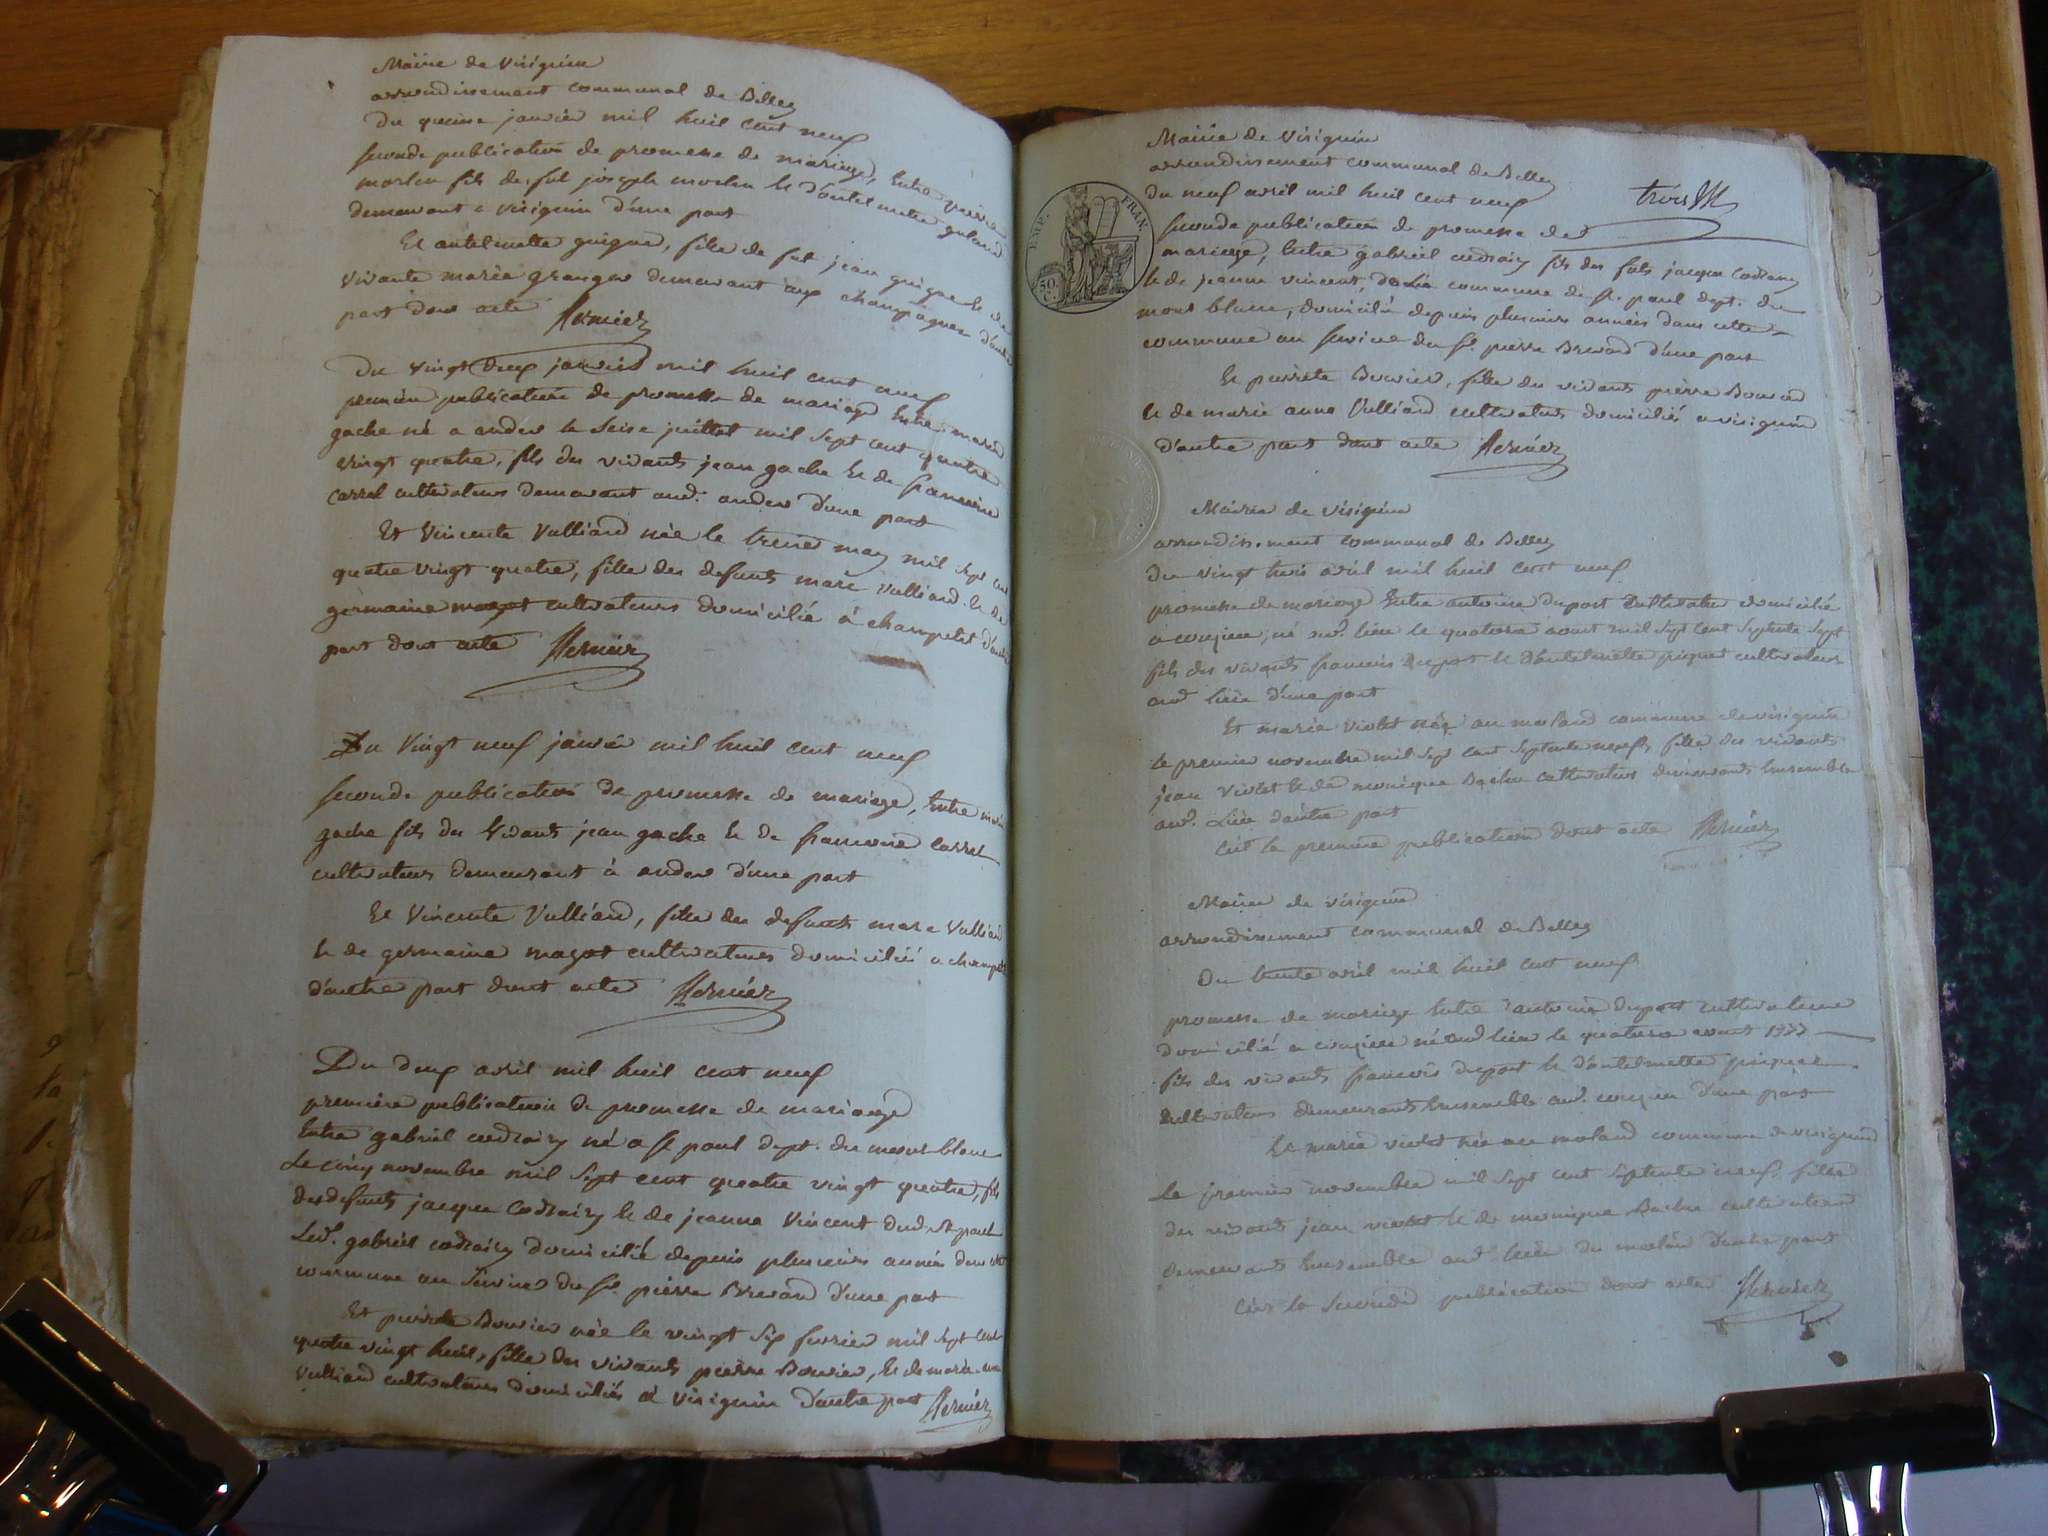 Mairie de Virignin
arrondissement communal de Belley
du quinze janvier mil huit cent neuf
seconde publication de promesse de mariage, Entre pierre
morlin fils de fut joseph morlin & d'antelmette
demeurant a Virignin d'une part
Et antelmette guigue, fille de fut jean guigue & de
vivante marie demeurant aux champagnes d'autre
part dont acte Mermier
Du vingt deux janvier mil huit cent neuf
premiere publication de promesse de mariage Entre marin
gache né a andert le seise juillet mil sept cent quatre
vingt quatre, fils des vivants jean gache & de francoise
carrel cultivateurs demeurant aud. andert d'une part
Et Vincente Vulliard née le treise may mil sept cent
quatre vingt quatre, fille des defunts marc Vulliard & de
germaine magot cultivateurs domicilié à champetel d'autre
part dont acte Mermier
Du Vingt neuf janvier mil huit cent neuf
seconde publication de promesse de mariage, Entre marin
gache fils des vivants jean gache & de francoise carrel
cultivateurs demeurant à andert d'une part
Et Vincente Vulliard, fille des defunts marc Vulliard
& de germaine magot cultivateurs domiciliés a champetel
d'autre part dont acte Mermier
Du deux avril mil huit cent neuf
première publication de promesse de mariage
Entre gabriel né a St. paul dept. du mont blanc
Le cinq novembre mil sept cent quatre vingt quatre, fils
des defunts jacque & de jeanne Vincent dud. St. paul
Led. gabriel domicilié depuis plusieurs années dans cette
commune au service du Sr. pierre Brevard d'une part
Et pierrete Bouvier née le vingt six fevrier mil sept cent
quatre vingt huit, fille des vivants pierre Bouvier, & de marie anne
Vulliard cultivateurs domiciliés à Virignin d'autre part Mermier
Mairie de Virignin
arrondissement communal de Belley
du neuf avril mil huit cent neuf
trois
EMP. FRAN.
50. C.
seconde publication de promesse de
mariage, Entre gabriel fils des futs jacque
& de jeanne vincent, de La commune de St. paul dept. du
mont blanc, domicilié depuis plusieurs années dans cette
commune au service du Sr. pierre Brevard d'une part
Et pierrete Bouvier, fille des vivants pierre Bouvier
& de marie anne Vulliard cultivateurs domiciliés a virignin
d'autre part dont acte Mermier
Mairie de Virignin
arrondissement communal de Belley
du vingt trois avril mil huit cent neuf
promesse de mariage Entre antoine duport Cultivateur domicilié
a conzieu, né aud. lieu le quatorse aoust mil sept cent septente sept
fils des vivants francois duport & d'antelmette cultivateurs
aud. lieu d'une part
Et marie violet née au moland commune de virignin
le premier novembre mil sept cent septente neuf, fille des vivants
jean violet & de monique cultivateurs demeurants Ensemble
aud. Lieu d'autre part
C'est la premiere publication dont acte Mermier
Mairie de virignin
arrondissement communal de Belley
Du trente avril mil huit cent neuf
promesse de mariage Entre antoine duport cultivateur
domicilié a conzieu né aud lieu le quatorse aoust 1777
fils des vivants francois duport & d'antelmette
cultivateurs demeurants Ensemble aud. conzieu d'une part
Et marie violet née au moland commune de virignin
le premier novembre mil sept cent septente neuf. fille
des vivants jean violet & de monique cultivateurs
demeurants Ensemble aud lieu du moland d'autre part
C'est la seconde publication dont acte Mermier